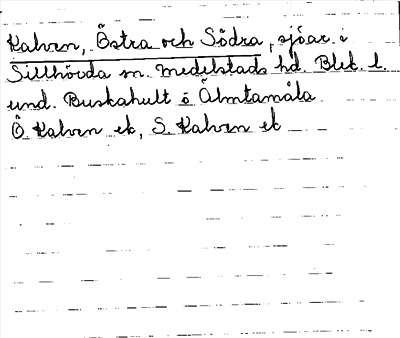 Kalven, Östra och Södra, sjöar i
Sillhövda sn. Medelstads hd. Blek. l.
und. Buskahult o Älmtamåla
Ö. Kalven ek, S. Kalven ek